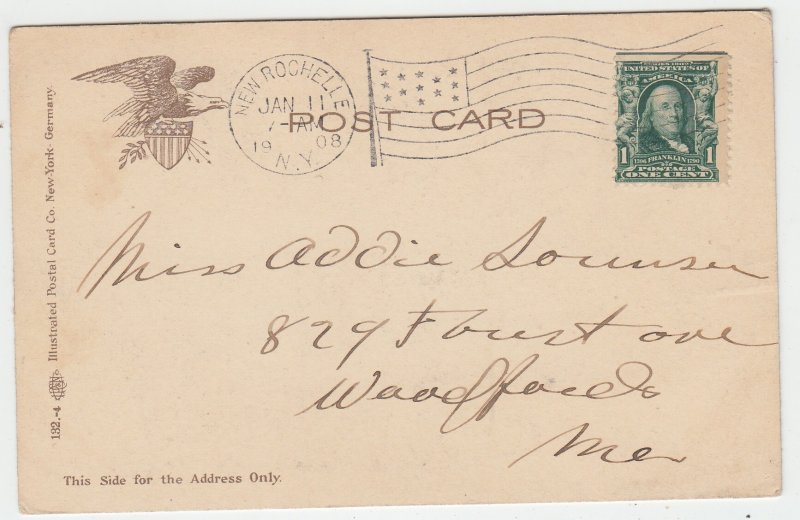 NEW ROCHELLE
JAN 11
7-AM
1908
N.Y.
POST CARD
SERIES 1902
UNITED STATES OF
AMERICA
1706 FRANKLIN 1790
1 1
POSTAGE
ONE CENT
Miss Addie
829 Forest ave
Woodfords
Me
This Side for the Address Only.
132.-4 Illustrated Postal Card Co. New-York-Germany.